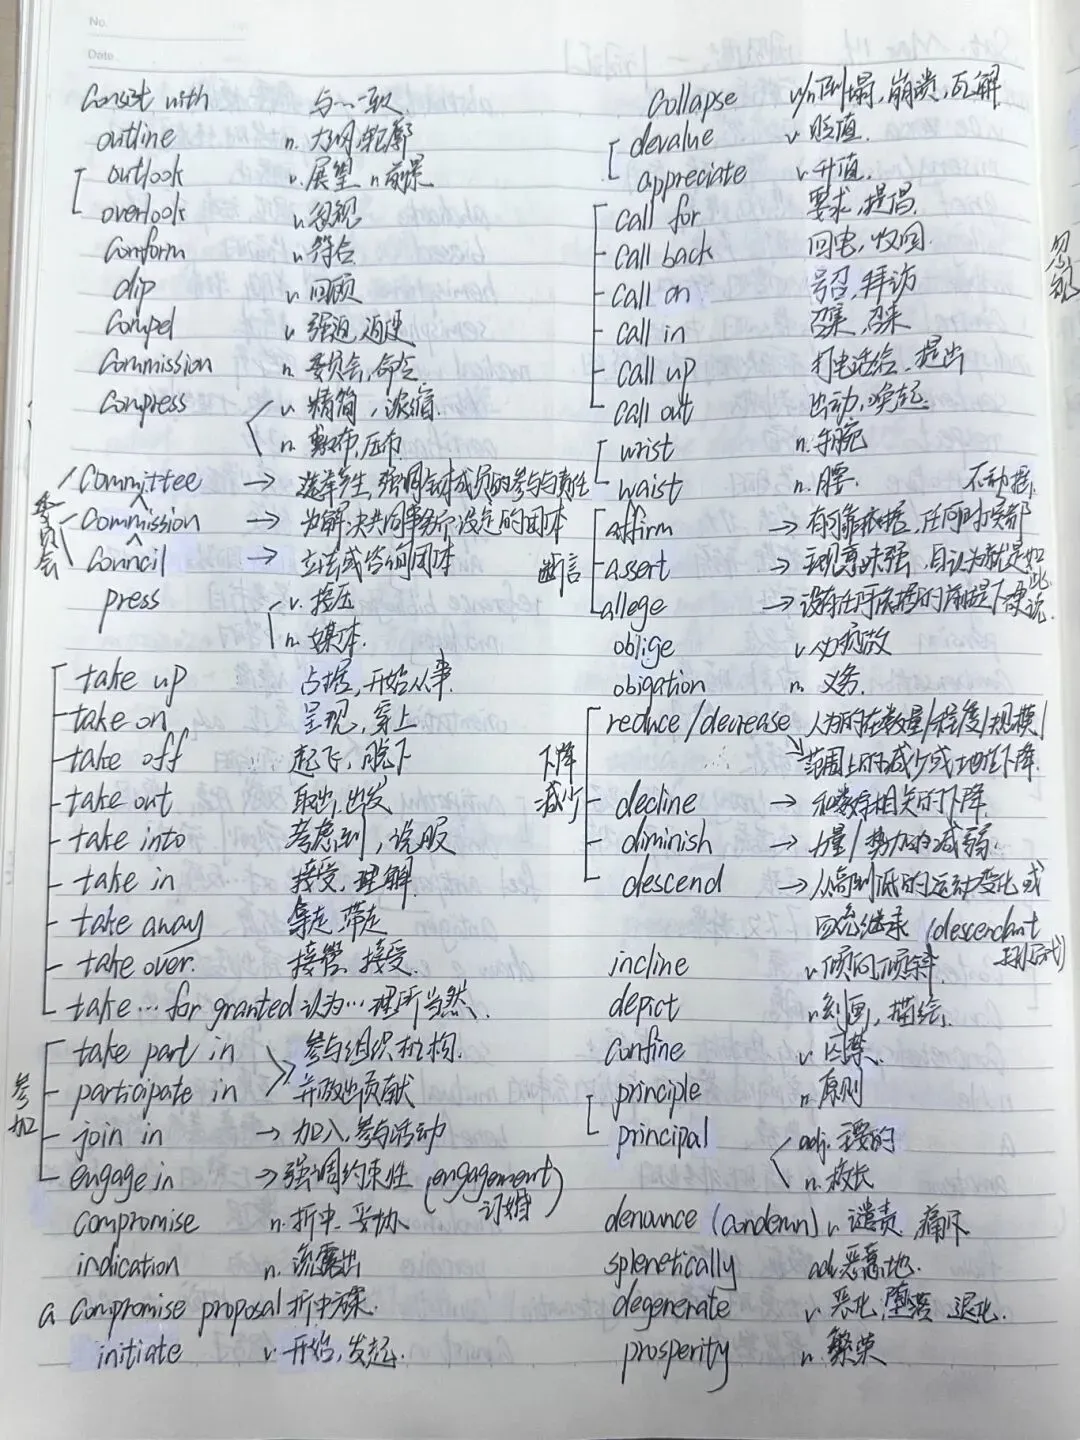 No.
Date
Consist with 与…一致
outline n. 大纲,轮廓
outlook v. 展望 n. 前景
overlook v. 忽视
conform v. 符合
dip v. 回顾
compel v. 强迫,迫使
commission n. 委员会,命令
compress v. 精简,浓缩
n. 敷布,压布
委员会
committee → 选举产生,强调全体成员的参与与责任
commission → 为解决共同事务所设定的团体
council → 立法或咨询团体
press v. 按压
n. 媒体
take up 占据,开始从事
take on 呈现,穿上
take off 起飞,脱下
take out 取出,出发
take into 考虑到,说服
take in 接受,理解
take away 拿走,带走
take over. 接管,接受
take … for granted 认为…理所当然
参加
take part in 参与组织机构.
participate in 并做出贡献
join in → 加入,参与活动
engage in → 强调约束性 (engagement)
订婚
compromise n. 折中,妥协
indication n. 流露出
a compromise proposal 折中方案.
initiate v. 开始,发起
collapse v/n 倒塌,崩溃,瓦解
devalue v. 贬值
appreciate v. 升值
call for 要求,提倡
call back 回电,收回
call on 号召,拜访
call in 召集,召来
call up 打电话给,提出
call out 出动,唤起
wrist n. 手腕
waist n. 腰
断言
affirm → 有可靠依据,任何时候都
不动摇
assert → 主观意味强,自认为就是如
此
allege → 没有任何依据的前提下硬说
oblige v. 必须做
obigation n. 义务
下降
减少
reduce/decrease 人为的在数量/程度/规模/
范围上的减少或力地下降.
decline → 和数字相关的下降
diminish → 力量/势力的减弱.
descend → 从高到低的运动变化或
血统继承 (descendant
incline v. 倾向,倾斜
depict v. 刻画,描绘
confine v. 囚禁
principle n. 原则
principal adj. 主要的
n. 校长
denounce (condemn) v. 谴责,痛斥
splenetically adv. 恶意地.
degenerate v. 恶化,堕落,退化.
prosperity n. 繁荣